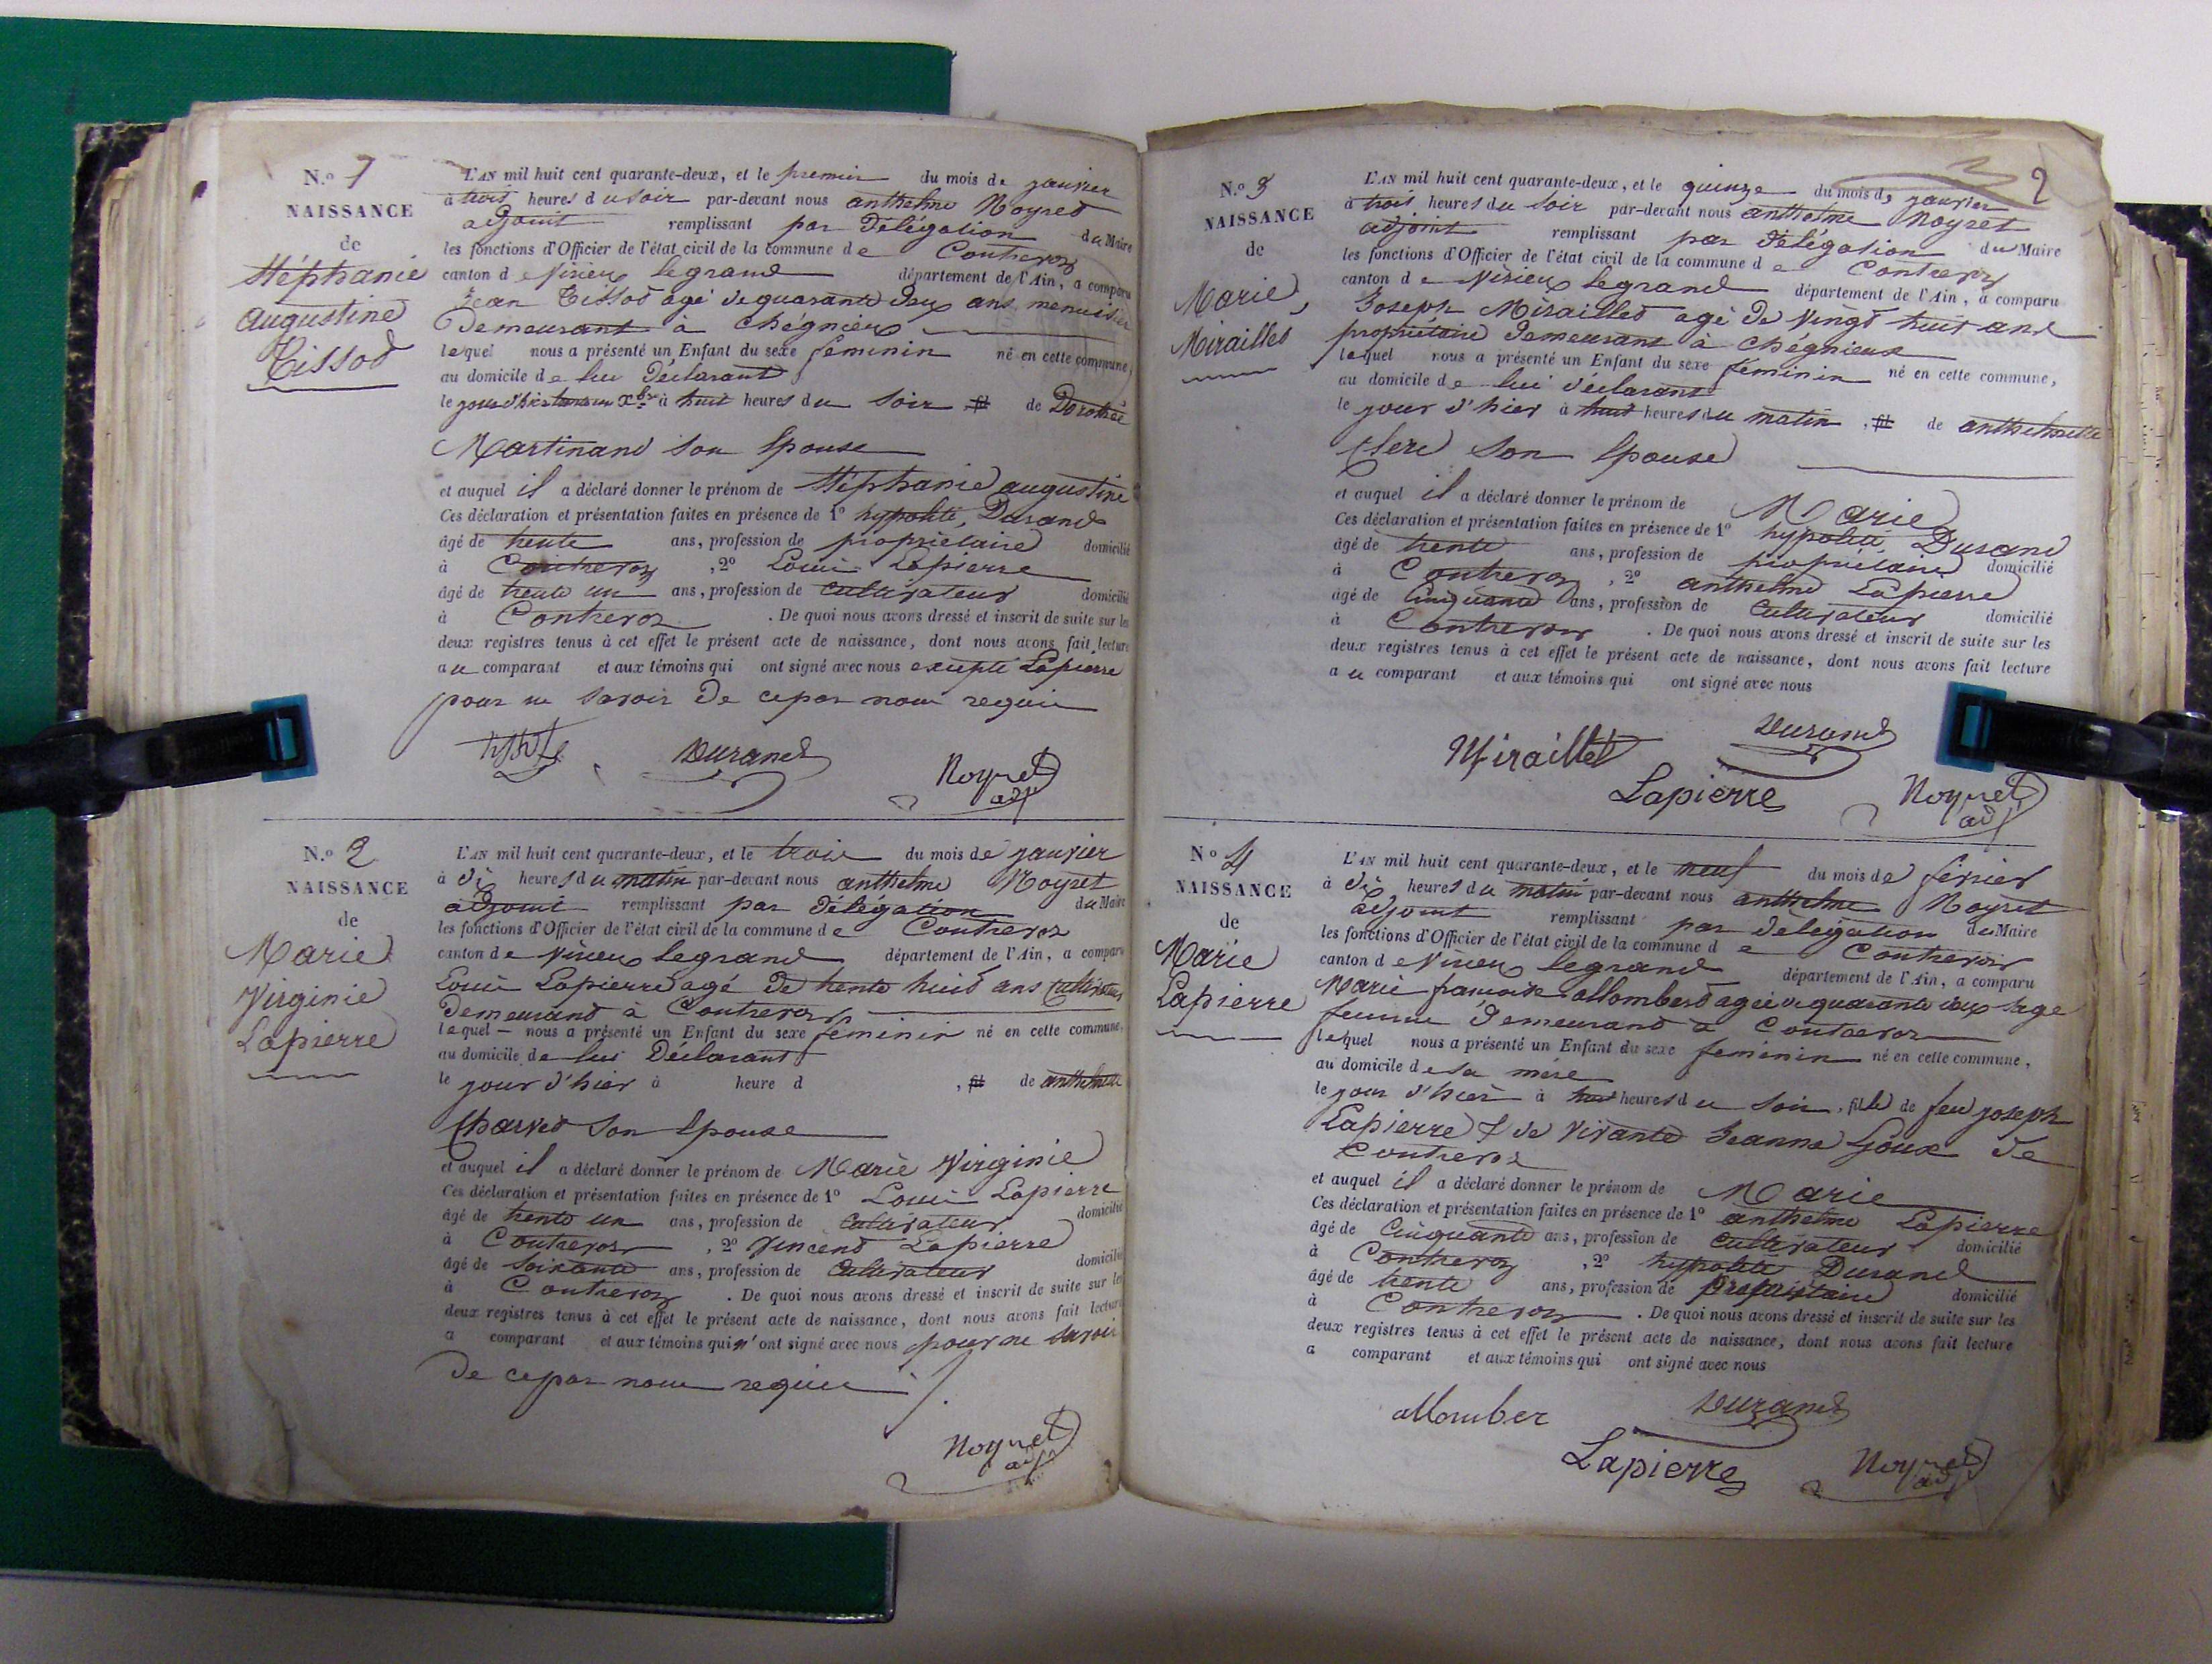 N.º 1
NAISSANCE
de
Stéphanie
augustine
Tissot
L'AN mil huit cent quarante-deux, et le premier du mois de janvier
à trois heures du soir par-devant nous anthelme Noyret
adjoint remplissant par délégation du Maire
les fonctions d'Officier de l'état civil de la commune de Contrevoz
canton de Virieux legrand département de l'Ain, a comparu
Jean Tissot agé de quarante deux ans menuisier
Demeurant à Chégnieux
lequel nous a présenté un Enfant du sexe feminin né en cette commune,
au domicile de lui Déclarant
le jour d'hier xbre à huit heures du soir fil de Dorothée
Martinand son Epouse
et auquel il a déclaré donner le prénom de Stéphanie augustine
Ces déclaration et présentation faites en présence de 1º hypolite Durand
âgé de trente ans, profession de propriétaire domicilié
à Contrevoz , 2º Louis Lapierre
âgé de trente un ans, profession de cultivateur domicilié
à Contrevoz . De quoi nous avons dressé et inscrit de suite sur les
deux registres tenus à cet effet le présent acte de naissance, dont nous avons fait lecture
au comparant et aux témoins qui ont signé avec nous excepté Lapierre
pour ne savoir de ce par nous requis
Durand
Noyret
adj
N.º 2
NAISSANCE
de
Marie
Virginie
Lapierre
L'AN mil huit cent quarante-deux, et le trois du mois de janvier
à dix heures du matin par-devant nous anthelme Noyret
adjoint remplissant par délégation du Maire
les fonctions d'Officier de l'état civil de la commune de Contrevoz
canton de Virieux legrand département de l'Ain, a comparu
Louis Lapierre agé de trente huit ans cultivateur
Demeurand à Contrevoz
lequel — nous a présenté un Enfant du sexe feminin né en cette commune,
au domicile de lui Déclarant
le jour d'hier à heure d , fil de anthelmette
Charvet son Epouse
et auquel il a déclaré donner le prénom de Marie Virginie
Ces déclaration et présentation faites en présence de 1º Louis Lapierre
âgé de trente un ans, profession de cultivateur domicilié
à Contrevoz , 2º Vincend Lapierre
âgé de soixante ans, profession de cultivateur domicilié
à Contrevoz . De quoi nous avons dressé et inscrit de suite sur les
deux registres tenus à cet effet le présent acte de naissance, dont nous avons fait lecture
a comparant et aux témoins qui n'ont signé avec nous pour ne savoir
de ce par nous requis
Noyret
adj
2
N.º 3
NAISSANCE
de
Marie
Mirailles
L'AN mil huit cent quarante-deux, et le quinze du mois de janvier
à trois heures du soir par-devant nous anthelme Noyret
adjoint remplissant par délégation du Maire
les fonctions d'Officier de l'état civil de la commune de Contrevoz
canton de Virieux legrand département de l'Ain, a comparu
Joseph Mirailles agé de vingt huit ans
propriétaire Demeurant à Chégnieux
lequel nous a présenté un Enfant du sexe féminin né en cette commune,
au domicile de lui déclarant
le jour d'hier à huit heures du matin , fil de anthelmette
Clerc son Epouse
et auquel il a déclaré donner le prénom de Marie
Ces déclaration et présentation faites en présence de 1º hypolite Durand
âgé de trente ans, profession de propriétaire domicilié
à Contrevoz , 2º anthelme Lapierre
âgé de cinquante ans, profession de cultivateur domicilié
à Contrevoz . De quoi nous avons dressé et inscrit de suite sur les
deux registres tenus à cet effet le présent acte de naissance, dont nous avons fait lecture
au comparant et aux témoins qui ont signé avec nous
Miraillet
Durand
Lapierre
Noyret
adj
Nº 4
NAISSANCE
de
Marie
Lapierre
L'AN mil huit cent quarante-deux, et le neuf du mois de février
à dix heures du matin par-devant nous anthelme Noyret
adjoint remplissant par délégation du Maire
les fonctions d'Officier de l'état civil de la commune de Contrevoz
canton de Virieux legrand département de l'Ain, a comparu
Marie francoise allomberd agée de quarante deux sage
femme Demeurand à Contrevoz
lequel nous a présenté un Enfant du sexe feminin né en cette commune,
au domicile de sa mère
le jour d'hier à huit heures du soir, fille de feu joseph
Lapierre & de vivante Jeanne Goux de
Contrevoz
et auquel il a déclaré donner le prénom de Marie
Ces déclaration et présentation faites en présence de 1º anthelme Lapierre
âgé de Cinquante ans, profession de cultivateur domicilié
à Contrevoz , 2º hypolite Durand
âgé de trente ans, profession de propriétaire domicilié
à Contrevoz . De quoi nous avons dressé et inscrit de suite sur les
deux registres tenus à cet effet le présent acte de naissance, dont nous avons fait lecture
a comparant et aux témoins qui ont signé avec nous
allomber
Durand
Lapierre
Noyret
adj